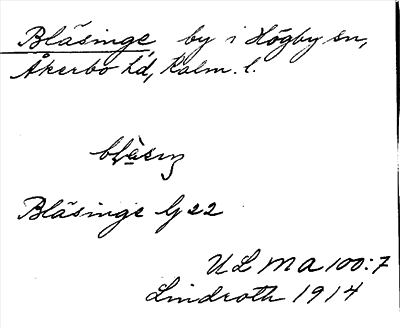 Bläsinge, by i Högby sn,
Åkerbo hd, Kalm. l.
Bläsinge G 22
ULMA 100:7
Lindroth 1914